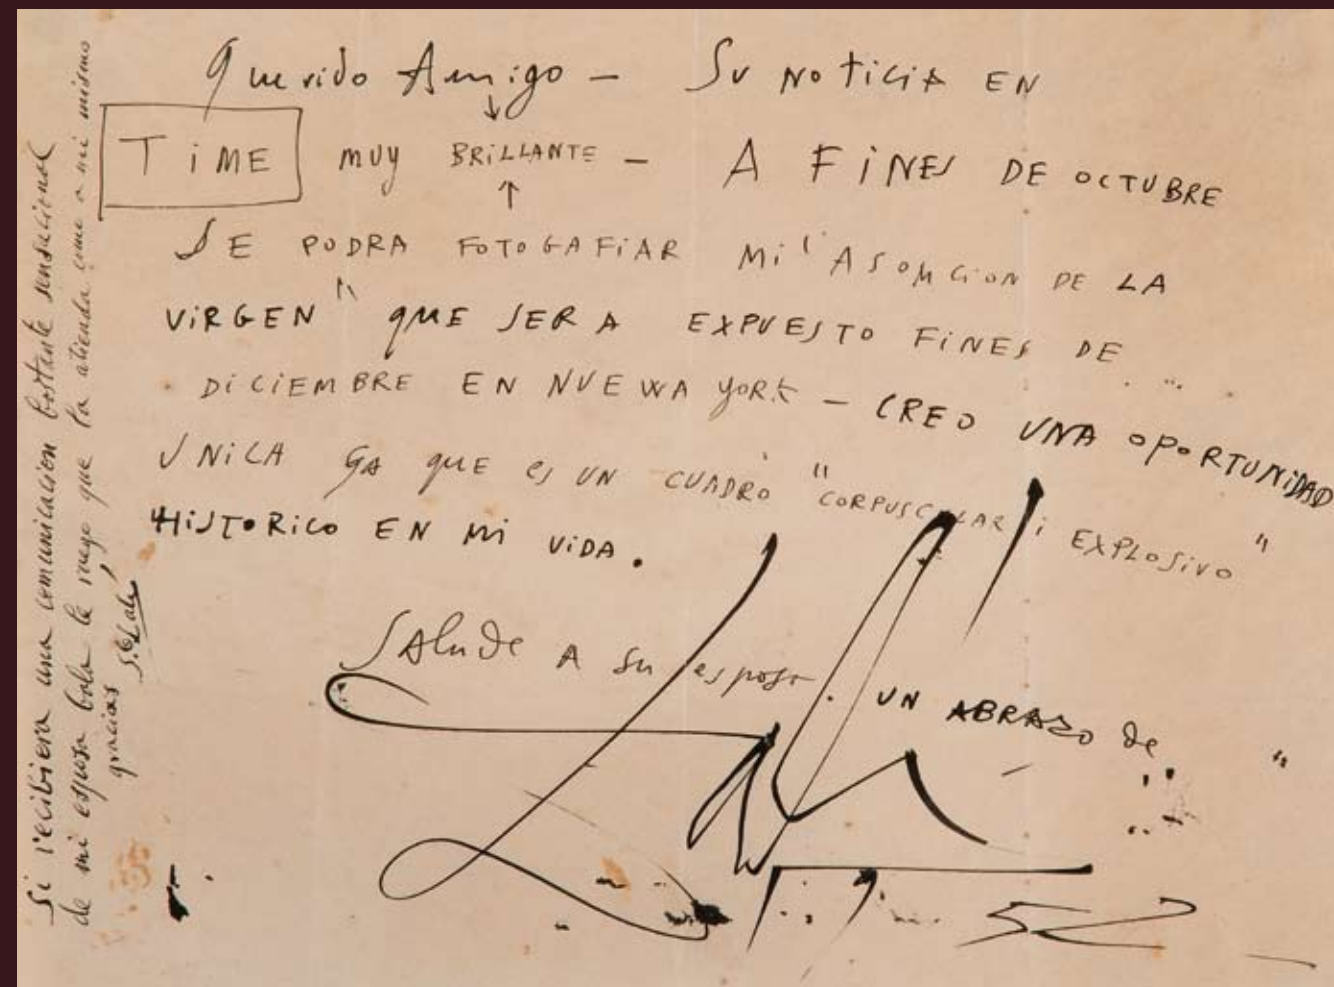 Querido Amigo — Su NOTiCiA EN
TiME muy BRiLLANTE — A FiNES DE OCTUBRE
SE PODRA FOTOGAFiAR Mi "ASOMCION DE LA
ViRGEN" QUE SERA EXPUESTO FiNES DE
DiCiEMBRE EN NUEWA YORK — CREO UNA OPORTUNiDAD
UNiCA YA QUE ES UN CUADRO "CORPUSCULAR i EXPLOSiVO"
HiSTORiCO EN Mi ViDA.
SAlude A Su esposa. UN ABRAZO de
Dalí
1952
Si recibiera una comunicacion bastante sensacional
de mi esposa Gala le ruego que la atienda como a mi mismo
gracias
S. Dalí